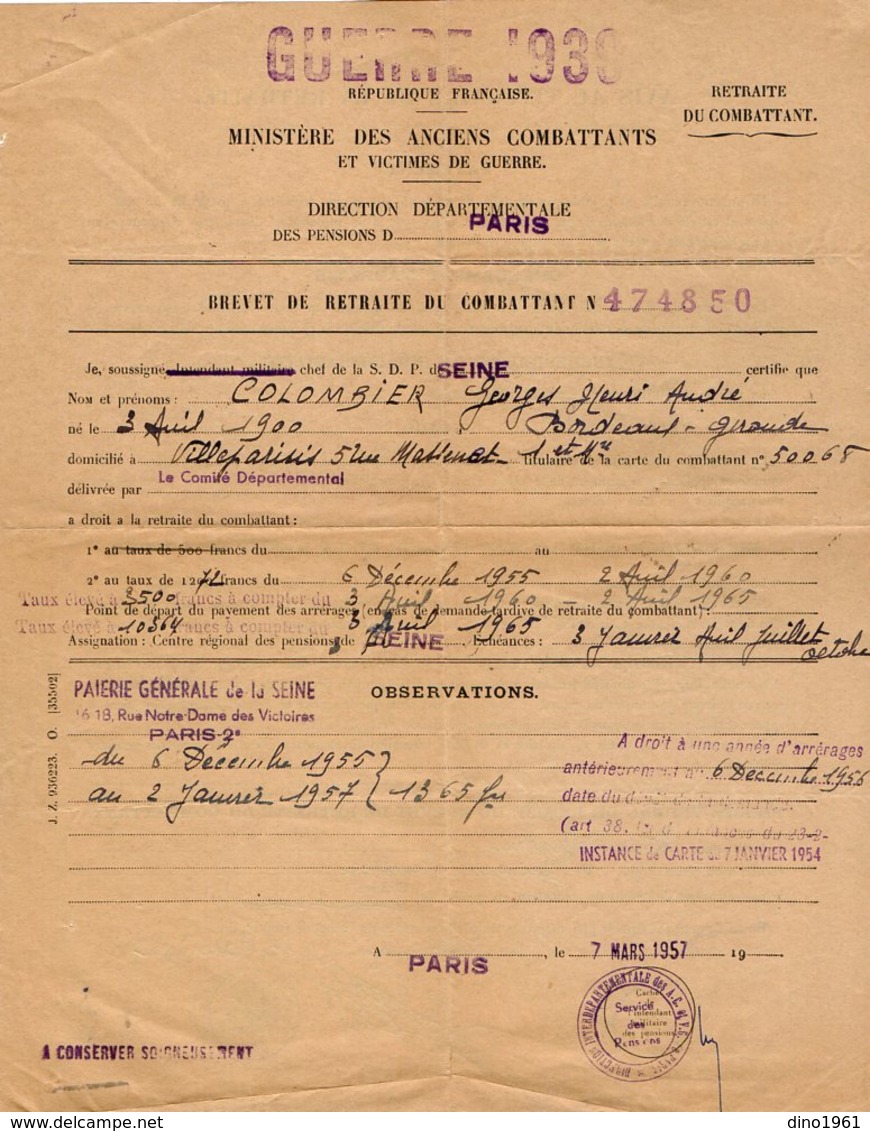 GUERRE 1939
RÉPUBLIQUE FRANÇAISE.
RETRAITE
DU COMBATTANT.
MINISTÈRE DES ANCIENS COMBATTANTS
ET VICTIMES DE GUERRE.
DIRECTION DÉPARTEMENTALE
DES PENSIONS D PARIS
BREVET DE RETRAITE DU COMBATTANT N 474850
Je, soussigné, Intendant militaire chef de la S. D. P. d SEINE certifie que
Nom et prénoms : COLOMBIER Georges Henri André
né le 3 Avril 1900 Bordeaux - Gironde
domicilié à Villeparisis 5 rue Massenet titulaire de la carte du combattant n° 50068
délivrée par Le Comité Départemental
a droit a la retraite du combattant :
1° au taux de 500 francs du au
2° au taux de 1272 francs du 6 Décembre 1955 2 Avril 1960
Taux élevé à 3500 francs à compter du 3 Avril 1960 - 2 Avril 1965
Point de départ du payement des arrérages (en cas de demande tardive de retraite du combattant) :
Taux élevé à 10364 francs à compter du 3 Avril 1965
Assignation : Centre régional des pensions de SEINE Echéances : 3 Janvier Avril Juillet
octobre
PAIERIE GÉNÉRALE de la SEINE
16-18, Rue Notre-Dame des Victoires
PARIS-2e
OBSERVATIONS.
du 6 Décembre 1955
au 2 Janvier 1957 } 1365 frs
A droit à une année d'arrérages
antérieurement au 6 Decembre 1956
date du
(art 38,
INSTANCE de CARTE du 7 JANVIER 1954
J. Z. 936223. O. [35502]
A PARIS, le 7 MARS 1957 19
DIRECTION INTERDÉPARTEMENTALE des A.C. et V.G.
Cachet
de
l'intendant
militaire
des pensions
Service
des
Pensions
A CONSERVER SOIGNEUSEMENT
dino1961